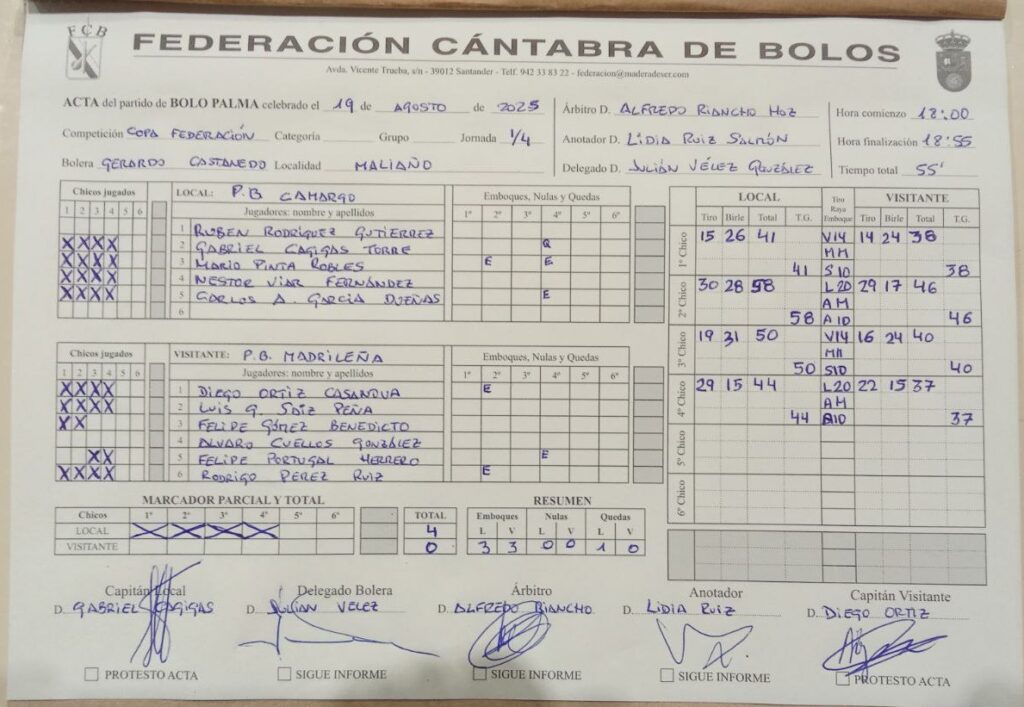 FCB
FEDERACIÓN CÁNTABRA DE BOLOS
Avda. Vicente Trueba, s/n - 39012 Santander - Telf. 942 33 83 22 - federacion@maderadeser.com
ACTA del partido de BOLO PALMA celebrado el 19 de AGOSTO de 2025
Competición COPA FEDERACIÓN Categoría Grupo Jornada 1/4
Bolera GERARDO CASTANEDO Localidad MALIAÑO
Árbitro D. ALFREDO RIANCHO HOZ
Anotador D. LIDIA RUIZ SALMÓN
Delegado D. JULIÁN VÉLEZ GONZÁLEZ
Hora comienzo 18:00
Hora finalización 18:55
Tiempo total 55'
Chicos jugados LOCAL: P.B. CAMARGO Emboques, Nulas y Quedas
1 2 3 4 5 6 Jugadores: nombre y apellidos 1º 2º 3º 4º 5º 6º
1 RUBEN RODRIGUEZ GUTIERREZ
X X X X 2 GABRIEL CAGIGAS TORRE Q
X X X X 3 MARIO PINTA ROBLES E E
X X X X 4 NESTOR VIAR FERNÁNDEZ
X X X X 5 CARLOS A. GARCIA DUEÑAS E
6
Chicos jugados VISITANTE: P.B. MADRILEÑA Emboques, Nulas y Quedas
1 2 3 4 5 6 Jugadores: nombre y apellidos 1º 2º 3º 4º 5º 6º
X X X X 1 DIEGO ORTIZ CASANOVA E
X X X X 2 LUIS G. SAIZ PEÑA
X X 3 FELIPE GÓMEZ BENEDICTO
4 ALVARO CUELLOS GONZÁLEZ
X X 5 FELIPE PORTUGAL HERRERO E
X X X X 6 RODRIGO PEREZ RUIZ E
LOCAL Tiro Raya Emboque VISITANTE
Tiro Birle Total T.G. Tiro Birle Total T.G.
1º Chico 15 26 41 V14 14 24 38
MM
41 S10 38
2º Chico 30 28 58 L20 29 17 46
AM
58 A10 46
3º Chico 19 31 50 V14 16 24 40
MM
50 S10 40
4º Chico 29 15 44 L20 22 15 37
AM
44 A10 37
5º Chico
6º Chico
MARCADOR PARCIAL Y TOTAL
Chicos 1º 2º 3º 4º 5º 6º TOTAL
LOCAL X X X X 4
VISITANTE 0
RESUMEN
Emboques Nulas Quedas
L V L V L V
3 3 0 0 1 0
Capitán Local
D. GABRIEL CAGIGAS
PROTESTO ACTA
Delegado Bolera
D. JULIAN VELEZ
SIGUE INFORME
Árbitro
D. ALFREDO RIANCHO
SIGUE INFORME
Anotador
D. LIDIA RUIZ
SIGUE INFORME
Capitán Visitante
D. DIEGO ORTIZ
PROTESTO ACTA